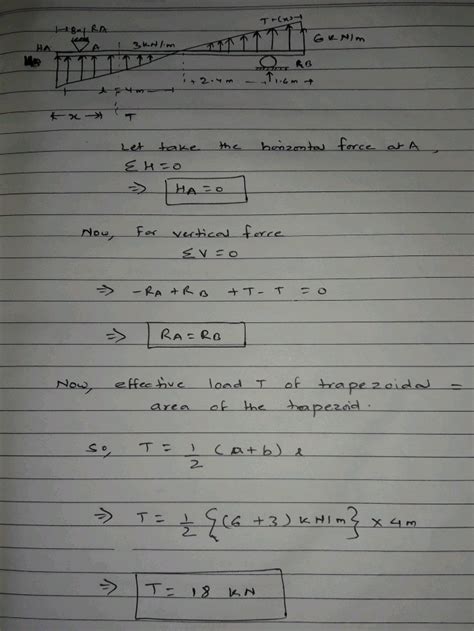 RA
T+(x)
HA
A
3kN/m
6 kN/m
RB
+2.4m
1.6m
l = 4m
x
T
Let take the horizontal force at A,
ΣH=0
⇒ HA=0
Now, For vertical force
ΣV=0
⇒ -RA+RB +T-T =0
⇒ RA=RB
Now, effective load T of trapezoidal =
area of the trapezoid.
So, T= 1/2 (a+b) l
⇒ T= 1/2 {(6+3) kN/m} × 4m
⇒ T= 18 kN